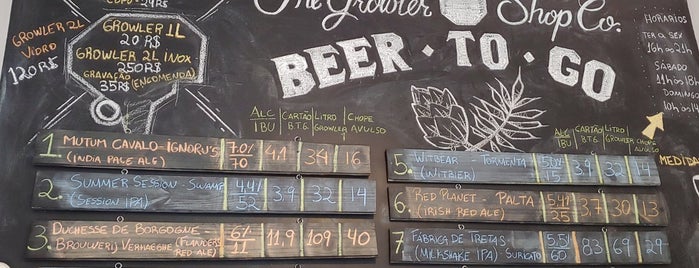 COPO - 29R$
GROWLER 2L
VIDRO
120R$
GROWLER 1L
20 R$
GROWLER 2L INOX
250R$
GRAVAÇÃO (ENCOMENDA)
35R$
The Growler Shop Co.
BEER · TO · GO
HORARIOS
TER a SEX
16h às 21h
SÁBADO
11h às 18h
DOMINGO
10h às
MEDIDA
ALC/IBU CARTÃO B.T.G. LITRO GROWLER CHOPE AVULSO
1. MUTUM CAVALO - IGNORU'S (INDIA PALE ALE) 7.0/70 41 34 16
2. SUMMER SESSION - SWAMP (SESSION IPA) 4,4%/52 39 32 14
3. DUCHESSE DE BORGOGNE - BROUWERIJ VERHAEGHE (FLANDERS RED ALE) 6%/11 11,9 109 40
ALC/IBU CARTÃO B.T.G. LITRO GROWLER CHOPE AVULSO
5. WITBEAR - TORMENTA (WITBIER) 15 34 32 14
6. RED PLANET - PALTA (IRISH RED ALE) 5.4%/25 3,7 30 13
7. FÁBRICA DE TRETAS (MILKSHAKE IPA) SURICATO 5.5%/60 83 69 29